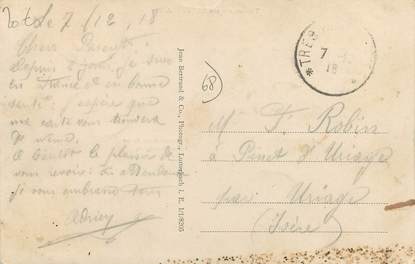 le 7/12/18
Chers Parents
Depuis 2 jours je suis
en et en bonne
santé j'espère que
ma carte vous trouvera
de même.
A bientôt le plaisir de
vous revoir. En attendant
je vous embrasse tous
Jean Bertrand & Co., Photogr., L. E. 118205
68
*TRES
7
18
Mr F. Robin
à Pinet d'Uriage
par Uriage
(Isère)